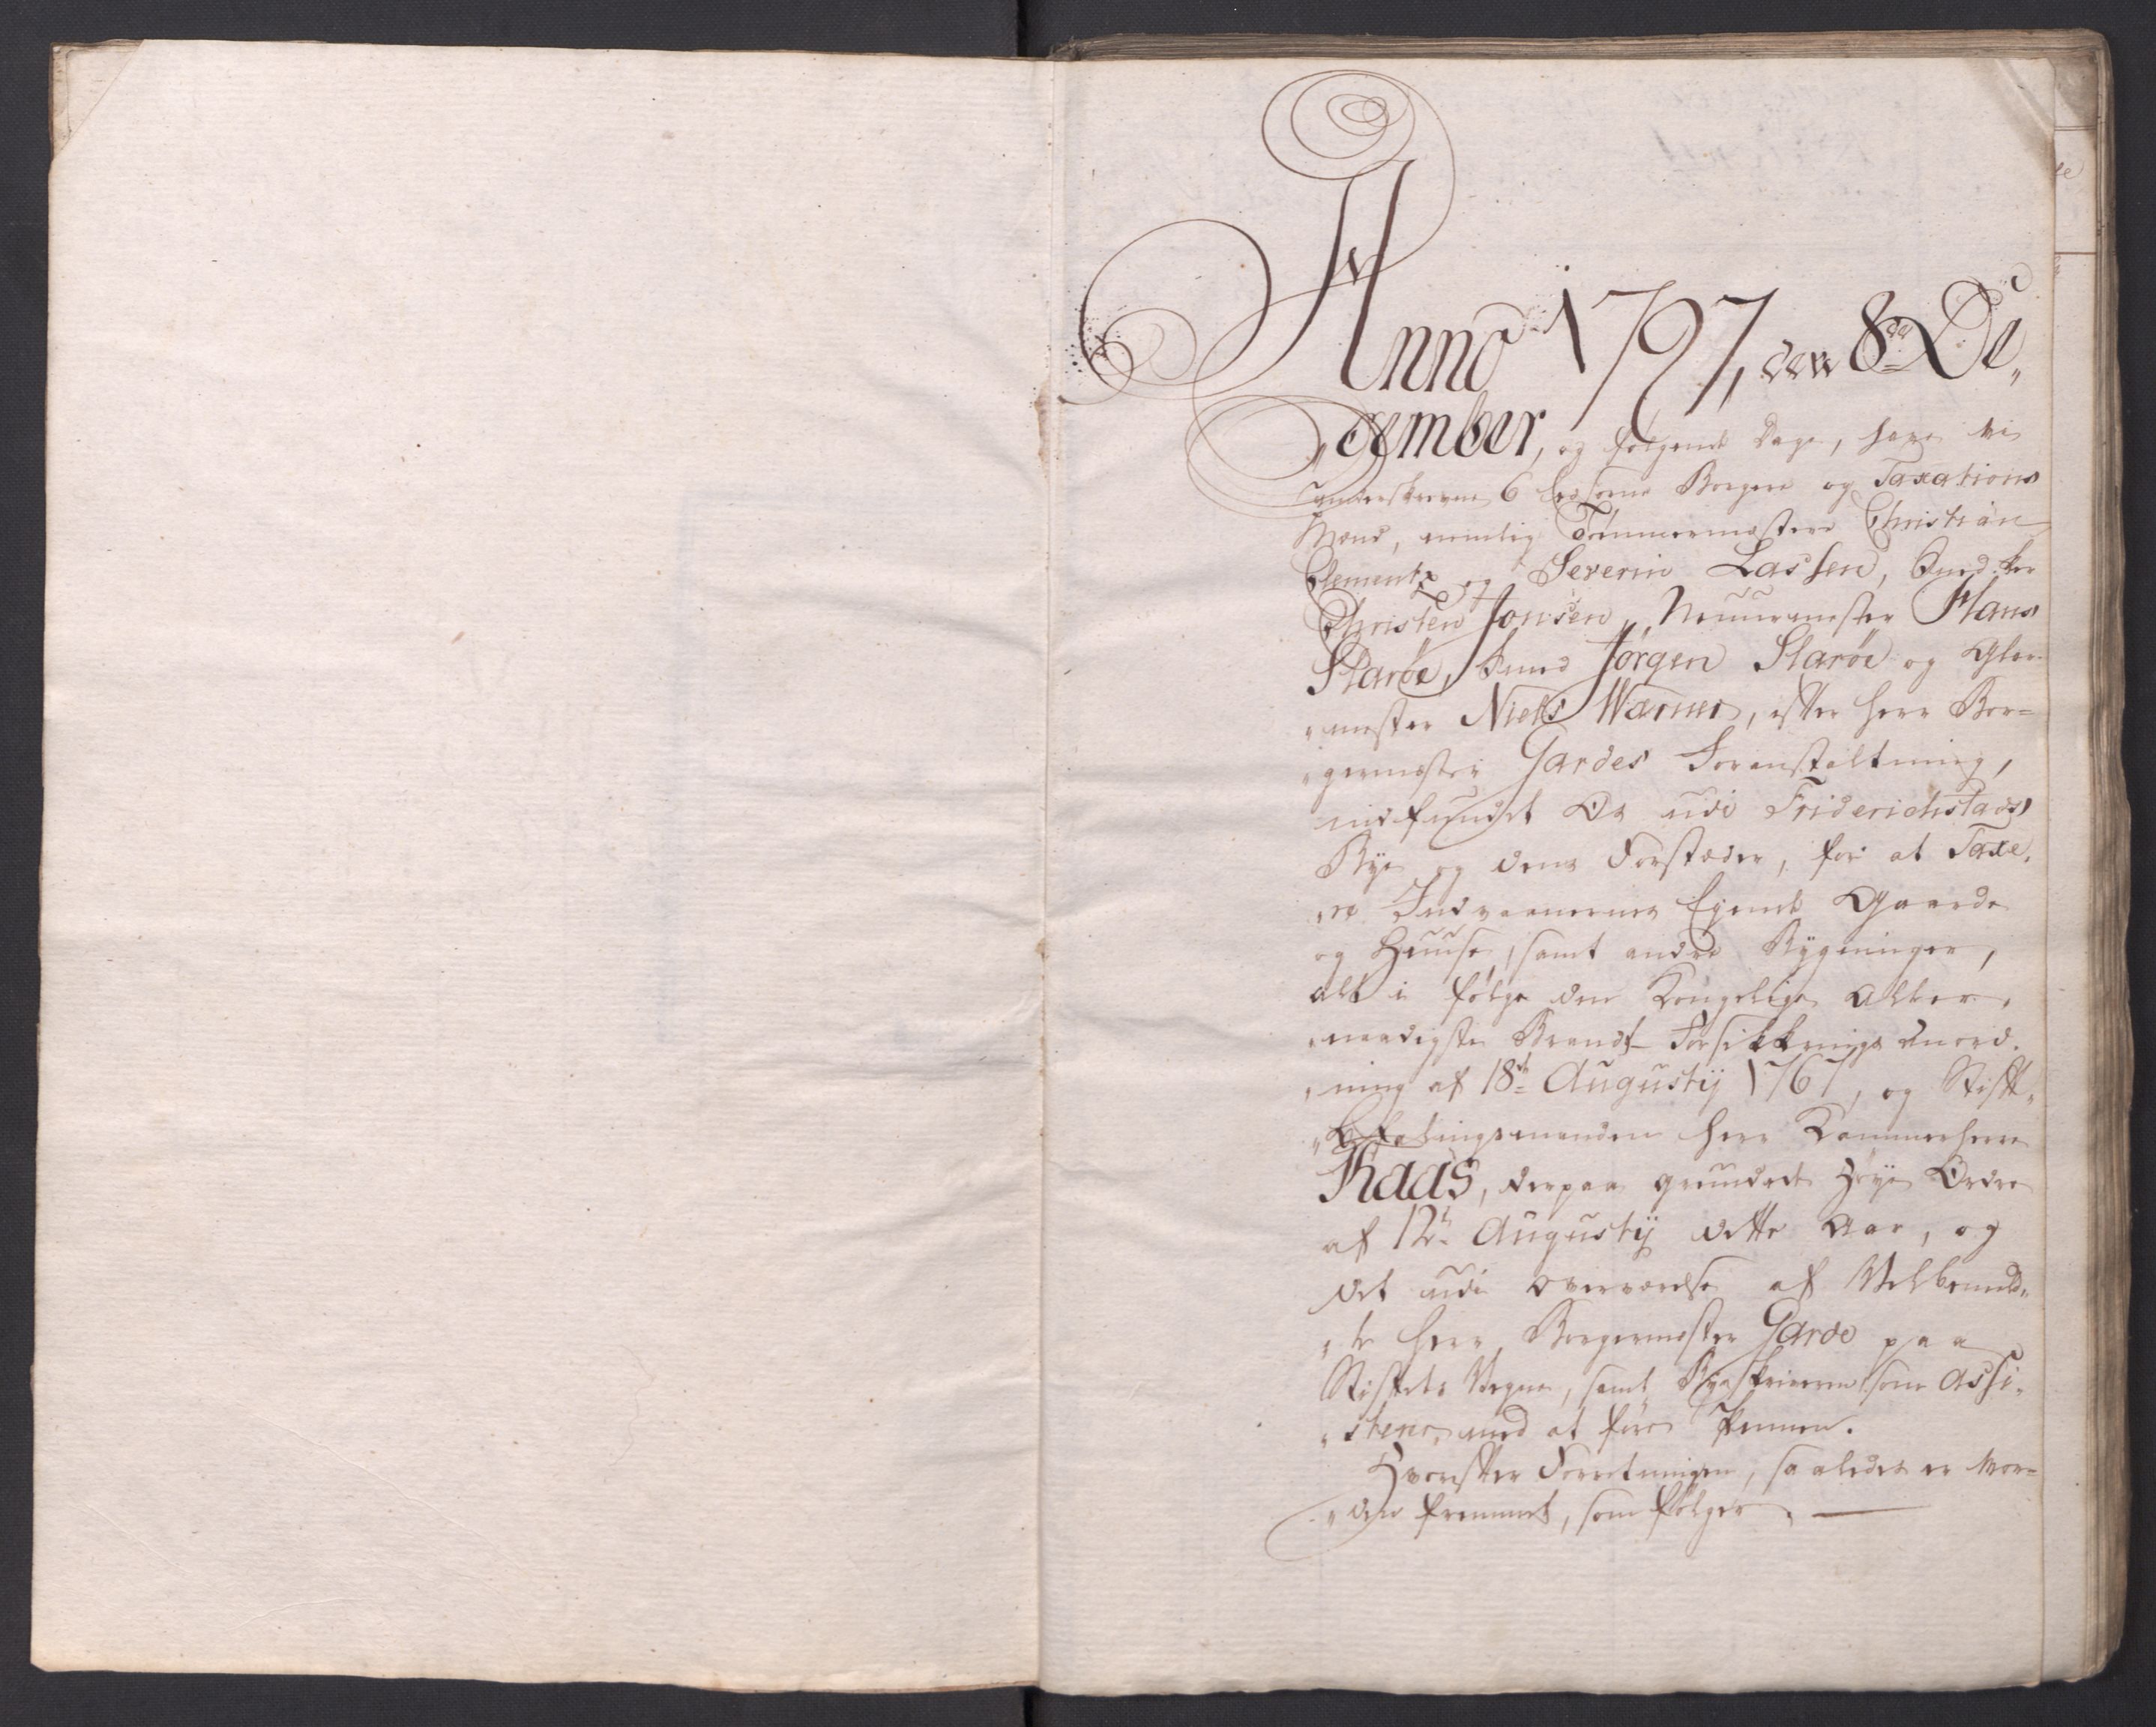 Anno 1797, den 8de De„
„cember, og følgende Dage, have vi
underskrevne 6 Eedsorne Borgere og Taxations
Mænd, nemlig Tømmermestere Christian
Clementz og Severin Lassen, Snedker
Christen Jonsen, Muurmester Hans
Slarøe, Smed Jørgen Slarøe og Glar
„mester Niels Wærner, efter Herr Bor=
„germester Gardes Foranstaltning,
indfundet Os udi Friderichstads
Bye og dens Forstæder, for at Taxe„
„re Indvaanernes Eyende Gaarde
og Huuse, samt andre Bygninger,
alt i følge den Kongelige Aller„
„naadigste Brand-Forsikkrings Anord„
„ning af 18de Augustij 1767, og Stift„
„Befalingsmanden Herr Kammerherre
Kaas, derpaa grundede Høye Ordre
af 12te Augustij dette Aar, og
det udi Overværelse af Velbemeld„
„te Herr Borgermester Garde paa
Stiftets Vegne, samt Byeskriveren som Assi„
„stence med at føre Pennen.
Hvorefter Forretningen, saaledes er vor=
„den fremmet, som følger